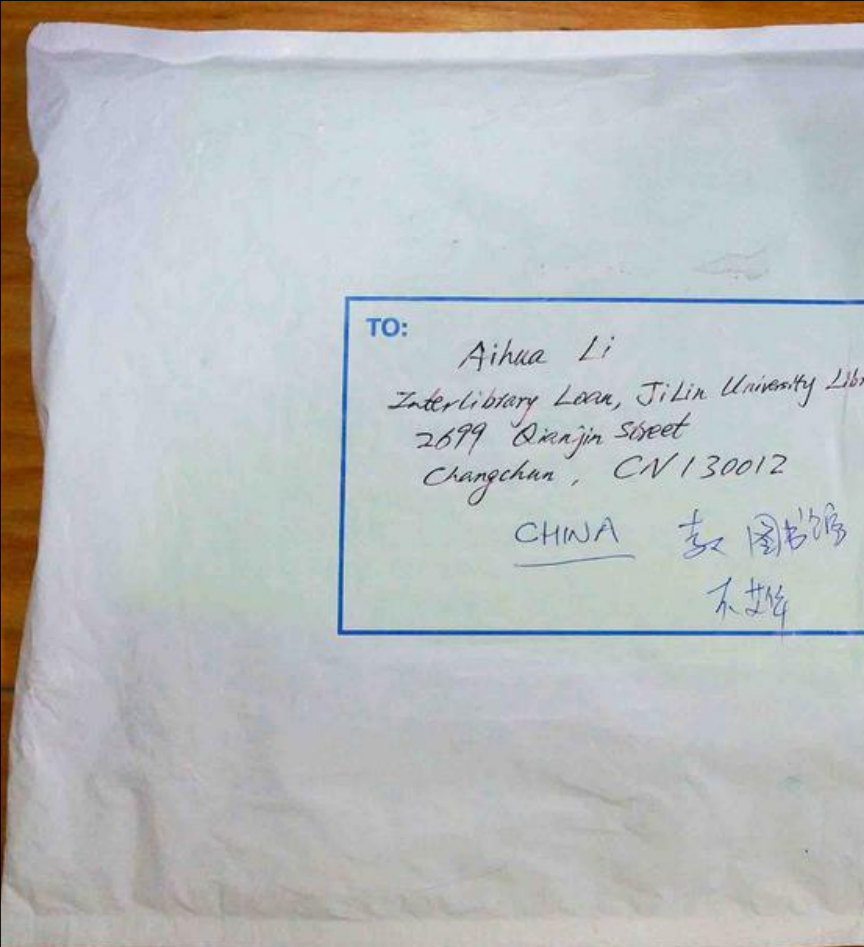 TO:
Aihua Li
Interlibrary Loan, JiLin University Libr
2699 Qianjin Street
Changchun, CN 130012
CHINA 图书馆